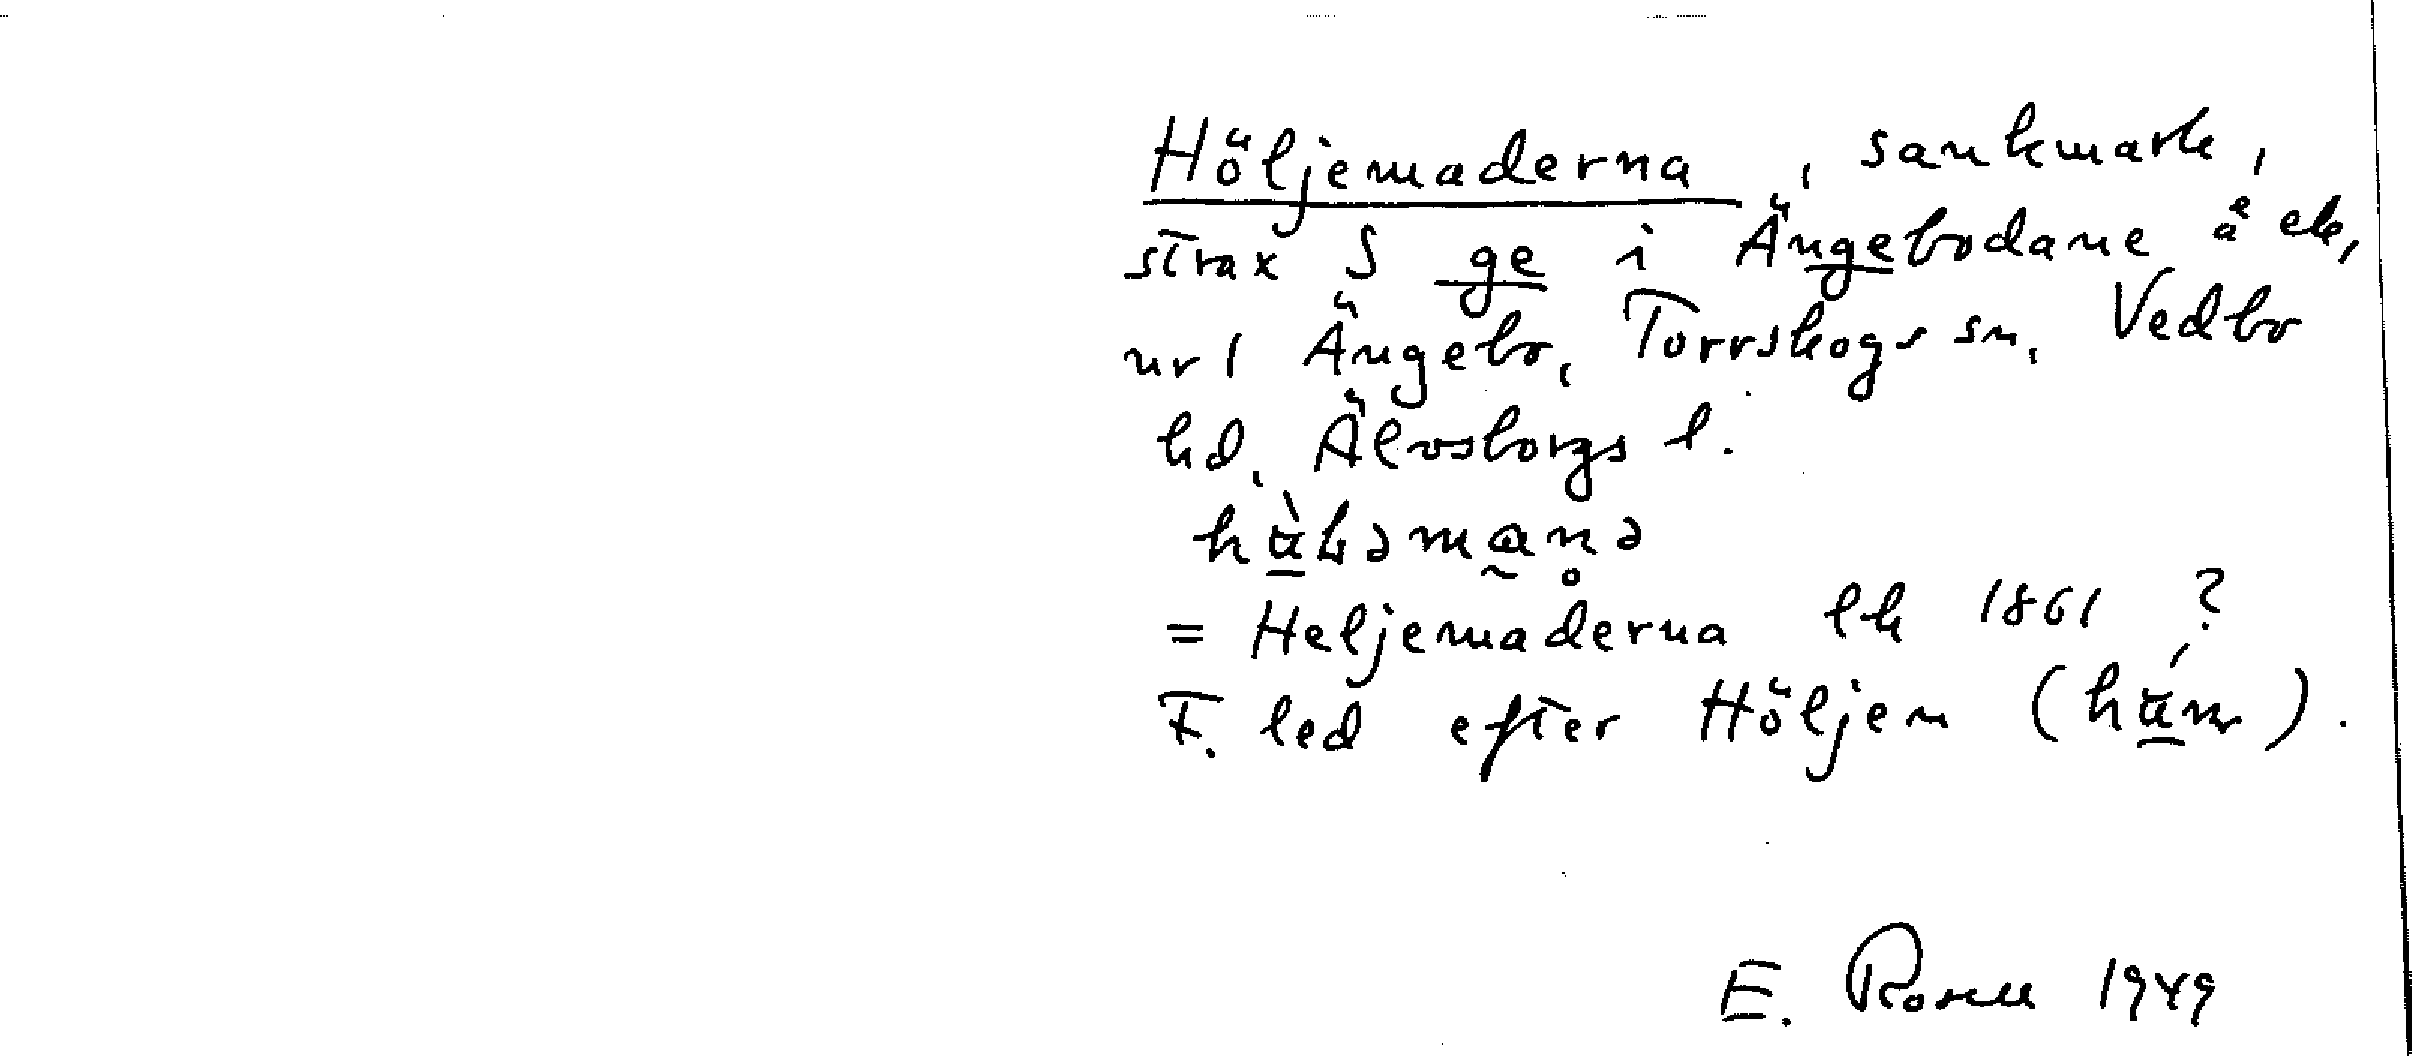 Höljemaderna, sankmark,
strax S ge i Ängebodane å ek,
nr 1 Ängebo, Torrskogs sn, Vedbo
hd, Älvsborgs l.
= Heljemaderna lk 1861 ?
F. led efter Höljen
E. Rosell 1949